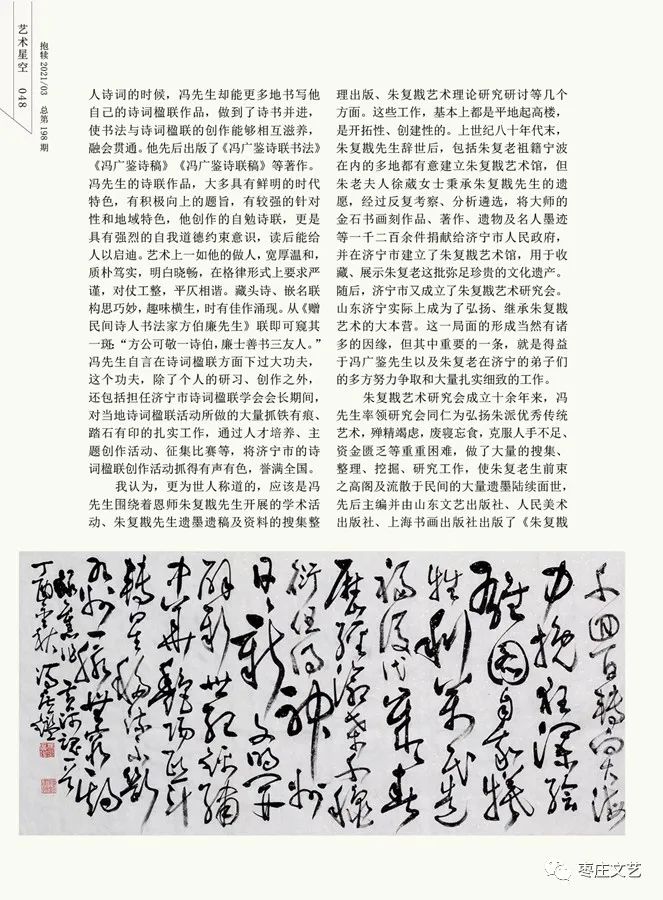 艺术星空 048
抱犊 2021/03 总第198期
人诗词的时候，冯先生却能更多地书写他
自己的诗词楹联作品，做到了诗书并进，
使书法与诗词楹联的创作能够相互滋养，
融会贯通。他先后出版了《冯广鉴诗联书法》
《冯广鉴诗稿》《冯广鉴诗联稿》等著作。
冯先生的诗联作品，大多具有鲜明的时代
特色，有积极向上的题旨，有较强的针对
性和地域特色，他创作的自勉诗联，更是
具有强烈的自我道德约束意识，读后能给
人以启迪。艺术上一如他的做人，宽厚温和，
质朴笃实，明白晓畅，在格律形式上要求严
谨，对仗工整，平仄相谐。藏头诗、嵌名联
构思巧妙，趣味横生，时有佳作涌现。从《赠
民间诗人书法家方伯廉先生》联即可窥其
一斑：“方公可敬一诗伯，廉士善书三友人。”
冯先生自言在诗词楹联方面下过大功夫，
这个功夫，除了个人的研习、创作之外，
还包括担任济宁市诗词楹联学会会长期间，
对当地诗词楹联活动所做的大量抓铁有痕、
踏石有印的扎实工作，通过人才培养、主
题创作活动、征集比赛等，将济宁市的诗
词楹联创作活动抓得有声有色，誉满全国。
我认为，更为世人称道的，应该是冯
先生围绕着恩师朱复戡先生开展的学术活
动、朱复戡先生遗墨遗稿及资料的搜集整
理出版、朱复戡艺术理论研究研讨等几个
方面。这些工作，基本上都是平地起高楼，
是开拓性、创建性的。上世纪八十年代末，
朱复戡先生辞世后，包括朱复老祖籍宁波
在内的多地都有意建立朱复戡艺术馆，但
朱老夫人徐葳女士秉承朱复戡先生的遗
愿，经过反复考察、分析遴选，将大师的
金石书画刻作品、著作、遗物及名人墨迹
等一千二百余件捐献给济宁市人民政府，
并在济宁市建立了朱复戡艺术馆，用于收
藏、展示朱复老这批弥足珍贵的文化遗产。
随后，济宁市又成立了朱复戡艺术研究会。
山东济宁实际上成为了弘扬、继承朱复戡
艺术的大本营。这一局面的形成当然有诸
多的因缘，但其中重要的一条，就是得益
于冯广鉴先生以及朱复老在济宁的弟子们
的多方努力争取和大量扎实细致的工作。
朱复戡艺术研究会成立十余年来，冯
先生率领研究会同仁为弘扬朱派优秀传统
艺术，殚精竭虑，废寝忘食，克服人手不足、
资金匮乏等重重困难，做了大量的搜集、
整理、挖掘、研究工作，使朱复老生前束
之高阁及流散于民间的大量遗墨陆续面世，
先后主编并由山东文艺出版社、人民美术
出版社、上海书画出版社出版了《朱复戡
枣庄文艺